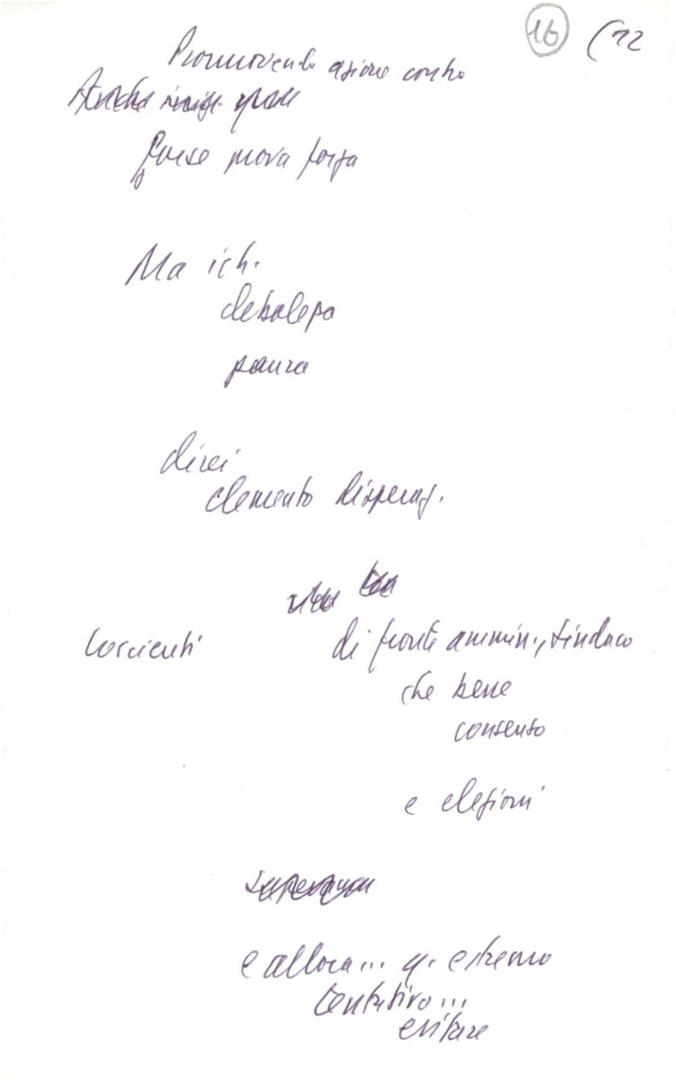 16 (12
Promuovendo azione contro
Forse prova forza
Ma ich.
debolezza
paura
direi
elemento disperaz.
Coscienti di fronte ammin., sindaco
che bene
consenso
e elezioni
e allora... q. estremo
tentativo...
evitare